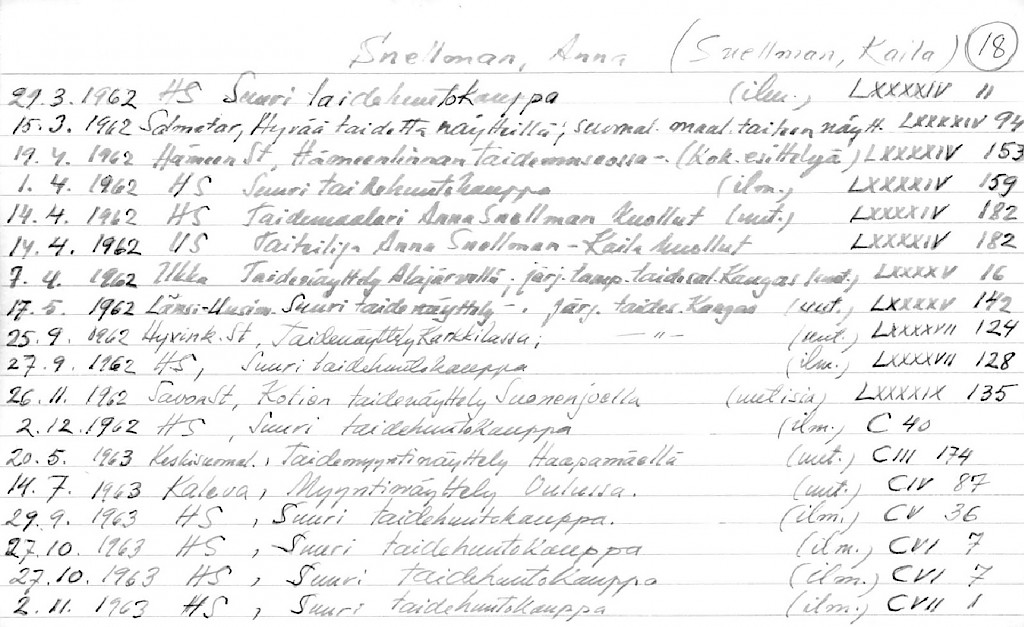 Snellman, Anna (Snellman, Kaila) 18
29.3.1962 HS Suuri taidehuutokauppa (ilm.) LXXXXIV 11
15.3.1962 Salmetar, Hyvää taidetta näytteillä; suomal. maal. taiteen näytt. LXXXXIV 94
19.4.1962 Hämeen St, Hämeenlinnan taidemuseossa-. (Kok. esittelyä) LXXXXIV 153
1.4.1962 HS Suuri taidehuutokauppa (ilm.) LXXXXIV 159
14.4.1962 HS Taidemaalari Anna Snellman kuollut (uut.) LXXXXIV 182
14.4.1962 HS Taiteilija Anna Snellman-Kaila kuollut LXXXXIV 182
7.4.1962 Ilkka Taidenäyttely Alajärvellä; järj. tamp. taidesal. Kangas (uut.) LXXXXV 16
17.5.1962 Länsi-Uusim. Suuri taidenäyttely-. järj. taides. Kangas (uut.) LXXXXV 142
25.9.1962 Hyvink. St, Taidenäyttely Karkkilassa; —"— (uut.) LXXXXVII 124
27.9.1962 HS, Suuri taidehuutokauppa (ilm.) LXXXXVII 128
26.11.1962 Savon St, Kolion taidenäyttely Suonenjoella (uutisia) LXXXXIX 135
2.12.1962 HS, Suuri taidehuutokauppa (ilm.) C 40
20.5.1963 Keskisuomal., Taidemyyntinäyttely Haapamäellä (uut.) CIII 174
14.7.1963 Kaleva, Myyntinäyttely Oulussa. (uut.) CIV 87
29.9.1963 HS, Suuri taidehuutokauppa. (ilm.) CV 36
27.10.1963 HS, Suuri taidehuutokauppa (ilm.) CVI 7
27.10.1963 HS, Suuri taidehuutokauppa (ilm.) CVI 7
2.11.1963 HS, Suuri taidehuutokauppa (ilm.) CVII 1